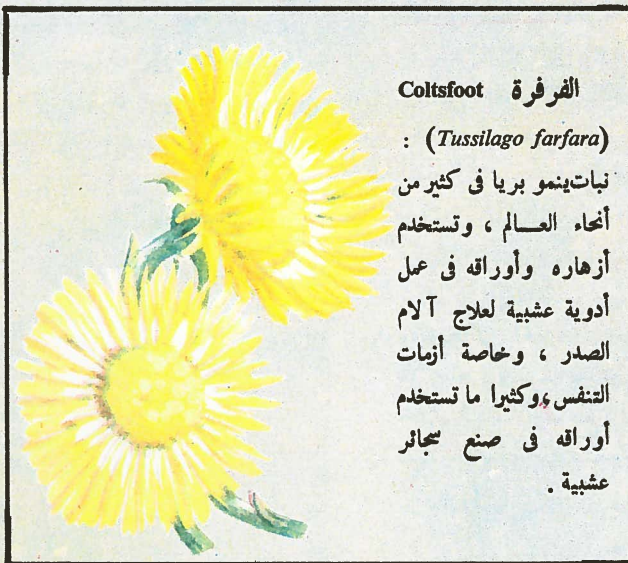 الفرفرة Coltsfoot
(Tussilago farfara) :
نبات ينمو بريا فى كثير من
أنحاء العـــالم ، وتستخدم
أزهاره وأوراقه فى عمل
أدوية عشبية لعلاج آلام
الصدر ، وخاصة أزمات
التنفس ، وكثيرا ما تستخدم
أوراقه فى صنع سجائر
عشبية .